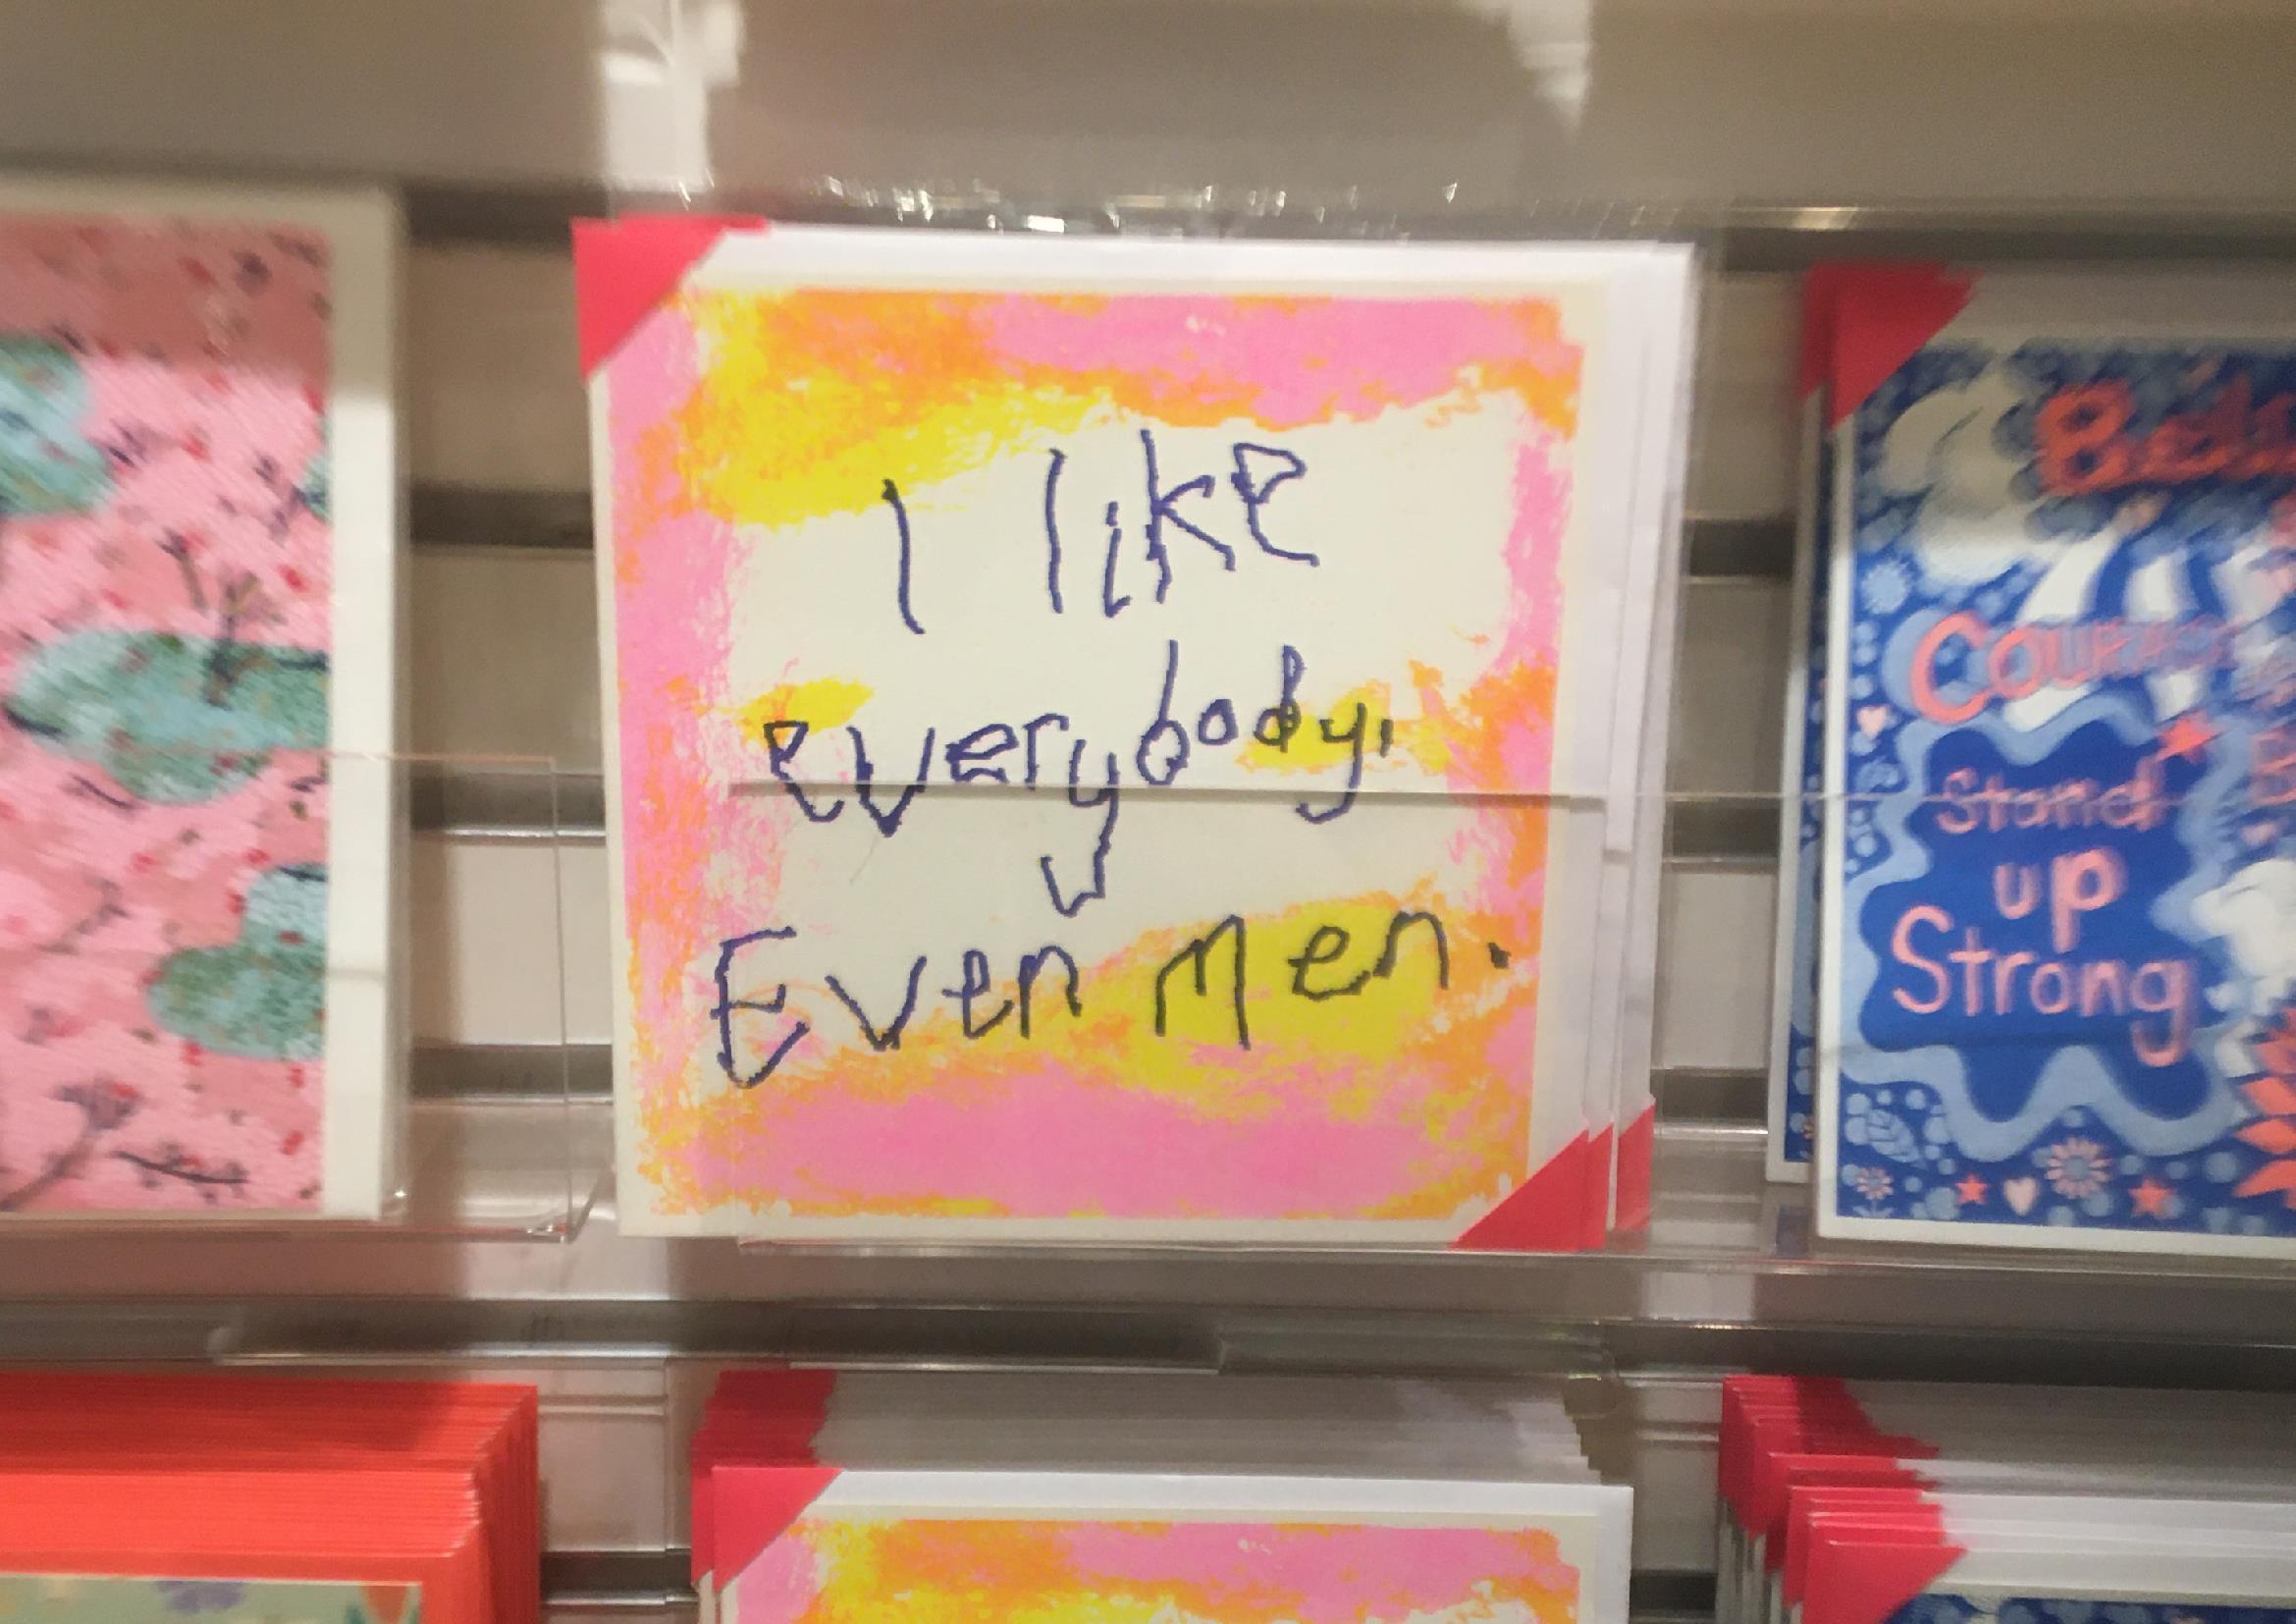 I like
everybody.
Even Men.
Stand
up
Strong